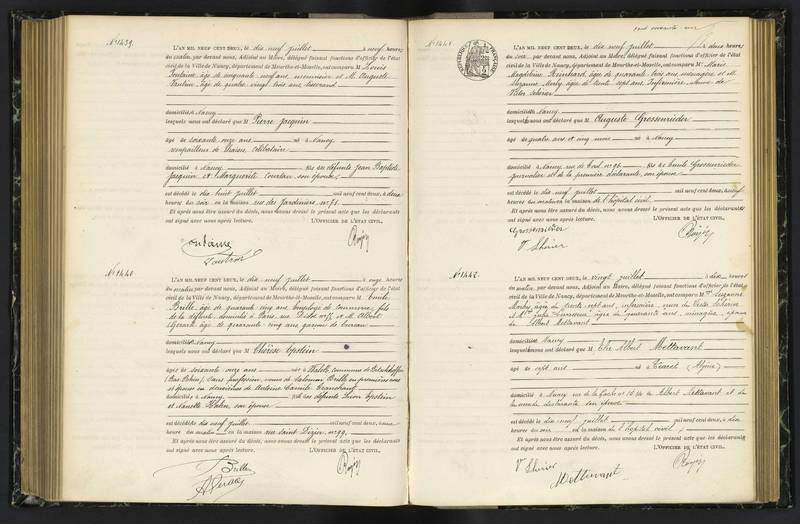 N° 1439.
L'AN MIL NEUF CENT DEUX, le dix neuf juillet à neuf heures
du matin, par devant nous, Adjoint au Maire, délégué faisant fonctions d'officier de l'état
civil de la Ville de Nancy, département de Meurthe-et-Moselle, ont comparu M. Louis
Fontaine, âgé de cinquante neuf ans, menuisier et M. Auguste
âgé de quatre vingt trois ans, tisserand
domiciliés à Nancy
lesquels nous ont déclaré que M Pierre Jacquin
âgé de soixante onze ans né à Nancy
rempailleur de chaises, célibataire
domicilié à Nancy fils des défunts Jean Baptiste
Jacquin et Marguerite Courtau, son épouse
est décédé le dix huit juillet mil neuf cent deux, à deux
heures du soir en la maison rue des Jardiniers n° 71.
Et après nous être assuré du décès, nous avons dressé le présent acte que les déclarants
ont signé avec nous après lecture. L'OFFICIER DE L'ÉTAT CIVIL,
Fontaine
N° 1440
L'AN MIL NEUF CENT DEUX, le dix neuf juillet à onze heures
du matin par devant nous, Adjoint au Maire, délégué faisant fonctions d'officier de l'état
civil de la Ville de Nancy, département de Meurthe-et-Moselle, ont comparu M. Emile
Brille, âgé de quarante cinq ans employé de commerce, fils
de la défunte, domicilié à Paris, rue et M. Albert
Gérard, âgé de quarante cinq ans garçon de bureau
domicilié à Nancy
lesquels nous ont déclaré que M Thérèse Epstein
âgée de soixante onze ans née à commune de
(Bas-Rhin) sans profession, veuve de Salomon Brille en premières noces
et épouse en deuxièmes de Antoine Camille
domiciliée à Nancy fille des défunts Epstein
et Nanette Hahn, son épouse
est décédée le dix neuf juillet mil neuf cent deux, à
heures du matin en la maison rue Saint Dizier, n° 99.
Et après nous être assuré du décès, nous avons dressé le présent acte que les déclarants
ont signé avec nous après lecture. L'OFFICIER DE L'ÉTAT CIVIL,
Brille
cent soixante un
N° 1441
RÉPUBLIQUE FRANÇAISE
L'AN MIL NEUF CENT DEUX, le dix neuf juillet à deux heures
du soir par devant nous, Adjoint au Maire, délégué faisant fonctions d'officier de l'état
civil de la Ville de Nancy, département de Meurthe-et-Moselle, ont comparu Me Marie
Magdeleine Reinhard, âgée de quarante trois ans, ménagère et M
Suzanne âgée de trente sept ans, Infirmière, veuve de
Victor
domiciliés à Nancy
lesquels nous ont déclaré que M Auguste Grossenrieder
âgé de quatre ans et cinq mois né à Nancy
domicilié à Nancy, rue de n° 96 fils de Emile Grossenrieder
journalier et de la première déclarante, son épouse
est décédé le dix neuf juillet mil neuf cent deux, à neuf
heures du matin en la maison de l'hôpital civil
Et après nous être assuré du décès, nous avons dressé le présent acte que les déclarants
ont signé avec nous après lecture. L'OFFICIER DE L'ÉTAT CIVIL,
Grossenrieder
N° 1442.
L'AN MIL NEUF CENT DEUX, le vingt juillet à dix heures
du matin, par devant nous, Adjoint au Maire, délégué faisant fonctions d'officier de l'état
civil de la Ville de Nancy, département de Meurthe-et-Moselle, ont comparu Me Suzanne
âgée de trente sept ans, infirmière, veuve de Victor
et Me Julie âgée de quarante ans, ménagère, épouse
de Albert Mettavant
domiciliés à Nancy
lesquels nous ont déclaré que M Albert Mettavant
âgé de sept ans né à (Algérie)
domicilié à Nancy fils de Albert Mettavant et de
la seconde déclarante son épouse
est décédé le dix neuf juillet mil neuf cent deux, à dix
heures du soir en la maison de l'hôpital civil
Et après nous être assuré du décès, nous avons dressé le présent acte que les déclarants
ont signé avec nous après lecture. L'OFFICIER DE L'ÉTAT CIVIL,
Mettavant